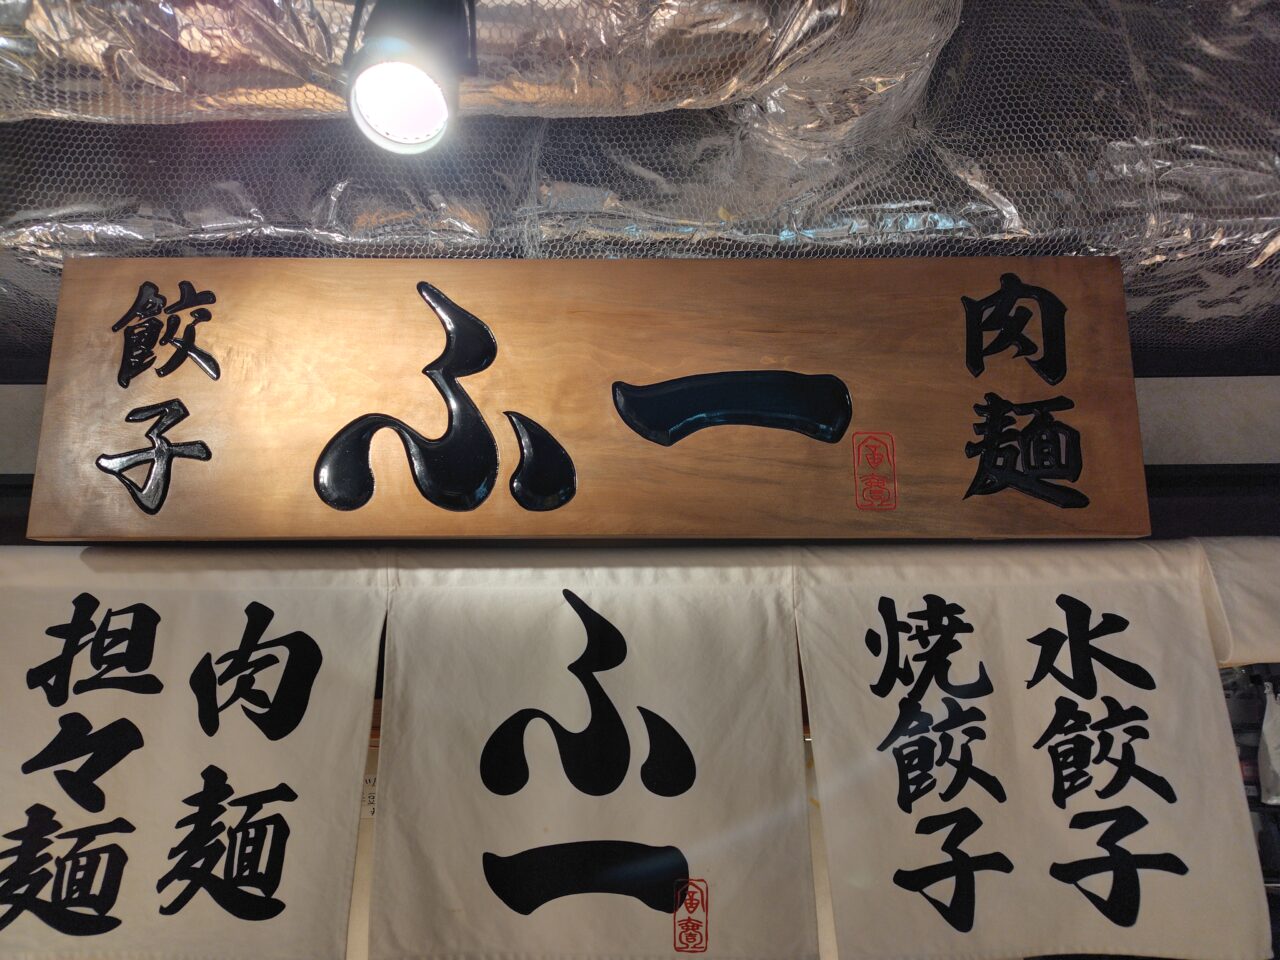 餃子
ふ一
肉麺
水餃子
焼餃子
ふ一
肉麺
担々麺